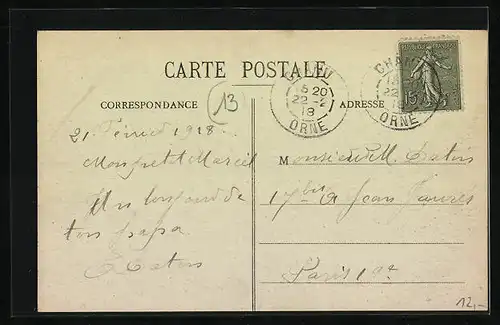 CARTE POSTALE
CORRESPONDANCE
ADRESSE
13
CHANU
15 20
22-2
18
ORNE
CHAN
15
22
18
ORNE
15
21 Février 1918.
Mon petit Marcel
Un bonjour de
ton papa
Monsieur M.
17 bis R Jean Jaurès
Paris 19e
12,-